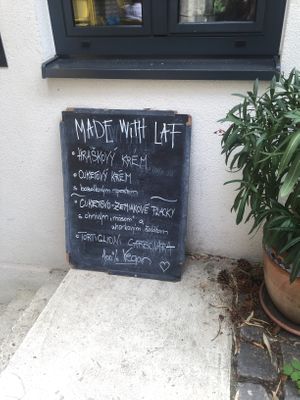 MADE WITH LAF
• HRÁŠKOVÝ KRÉM
• CUKETOVÝ KRÉM
s bazalkovým pestom
• CUKETOVO-ZEMIAKOVÉ PLACKY
s chrivým „mäsom" a
uhorkovým šalátom
• TORTIGLIONI CARBONARA
100% Vegan ♡